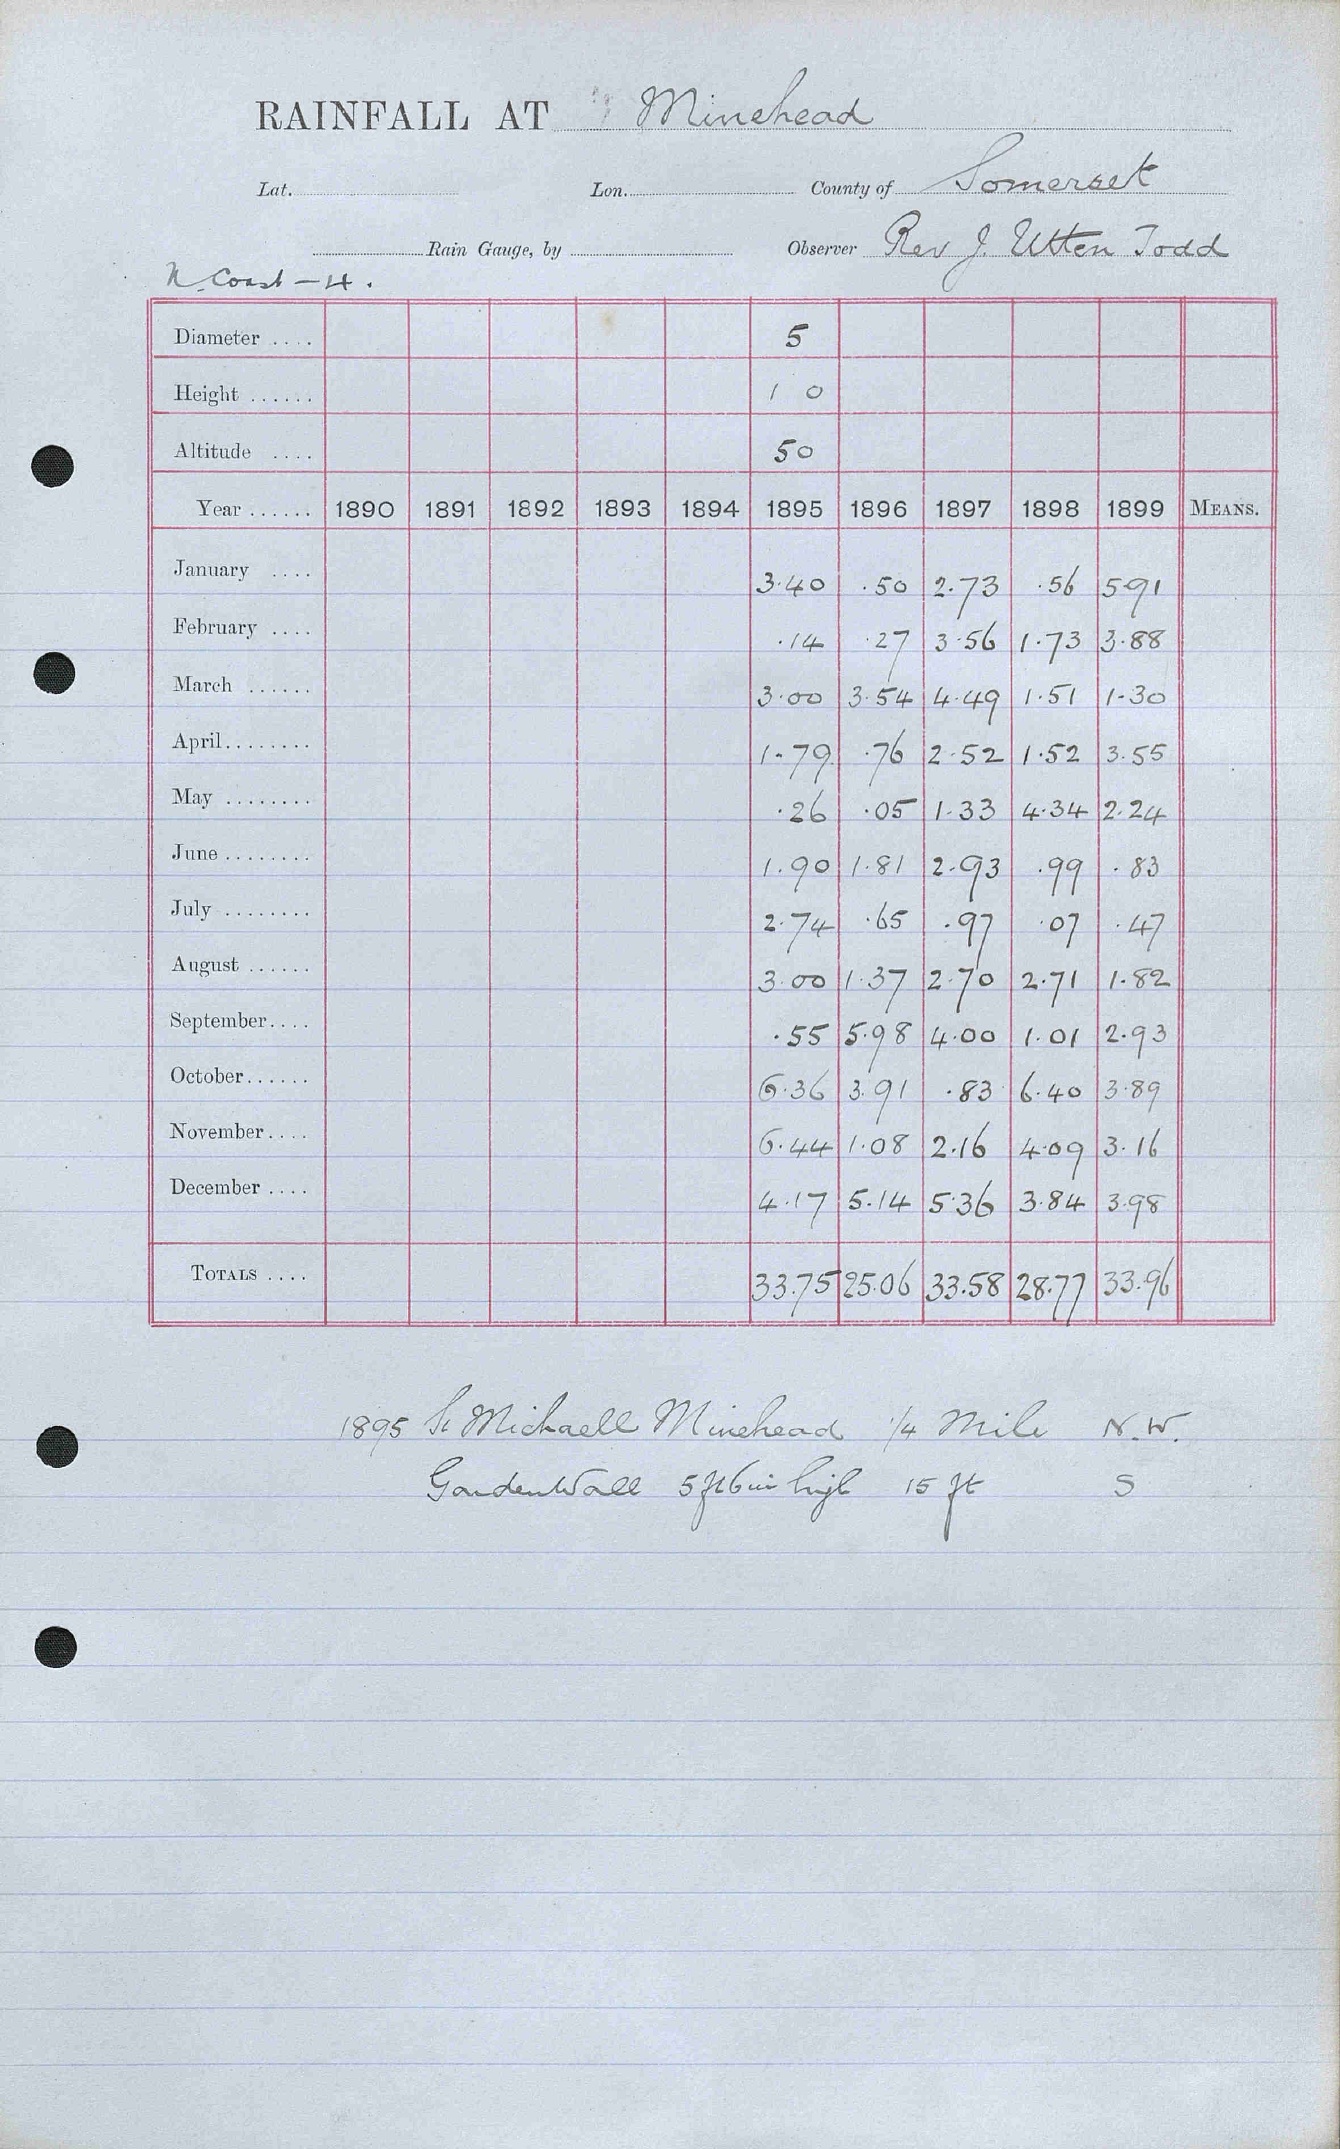 RAINFALL AT Minehead
Lat. Lon. County of Somerset
Rain Gauge, by Observer Rev J. Utten Todd
N. Coast - 4.
Diameter .... 5
Height ...... 1 0
Altitude .... 50
Year ...... 1890 1891 1892 1893 1894 1895 1896 1897 1898 1899 MEANS.
January .... 3.40 .50 2.73 .56 5.91
February .... .14 .27 3.56 1.73 3.88
March ...... 3.00 3.54 4.49 1.51 1.30
April........ 1.79 .76 2.52 1.52 3.55
May ........ .26 .05 1.33 4.34 2.24
June ........ 1.90 1.81 2.93 .99 .83
July ........ 2.74 .65 .97 .07 .47
August ...... 3.00 1.37 2.70 2.71 1.82
September.... .55 5.98 4.00 1.01 2.93
October...... 6.36 3.91 .83 6.40 3.89
November.... 6.44 1.08 2.16 4.09 3.16
December .... 4.17 5.14 5.36 3.84 3.98
TOTALS .... 33.75 25.06 33.58 28.77 33.96
1895 St Michaell Minehead 1/4 Mile N.W.
Garden Wall 5 ft 6 in high 15 ft S